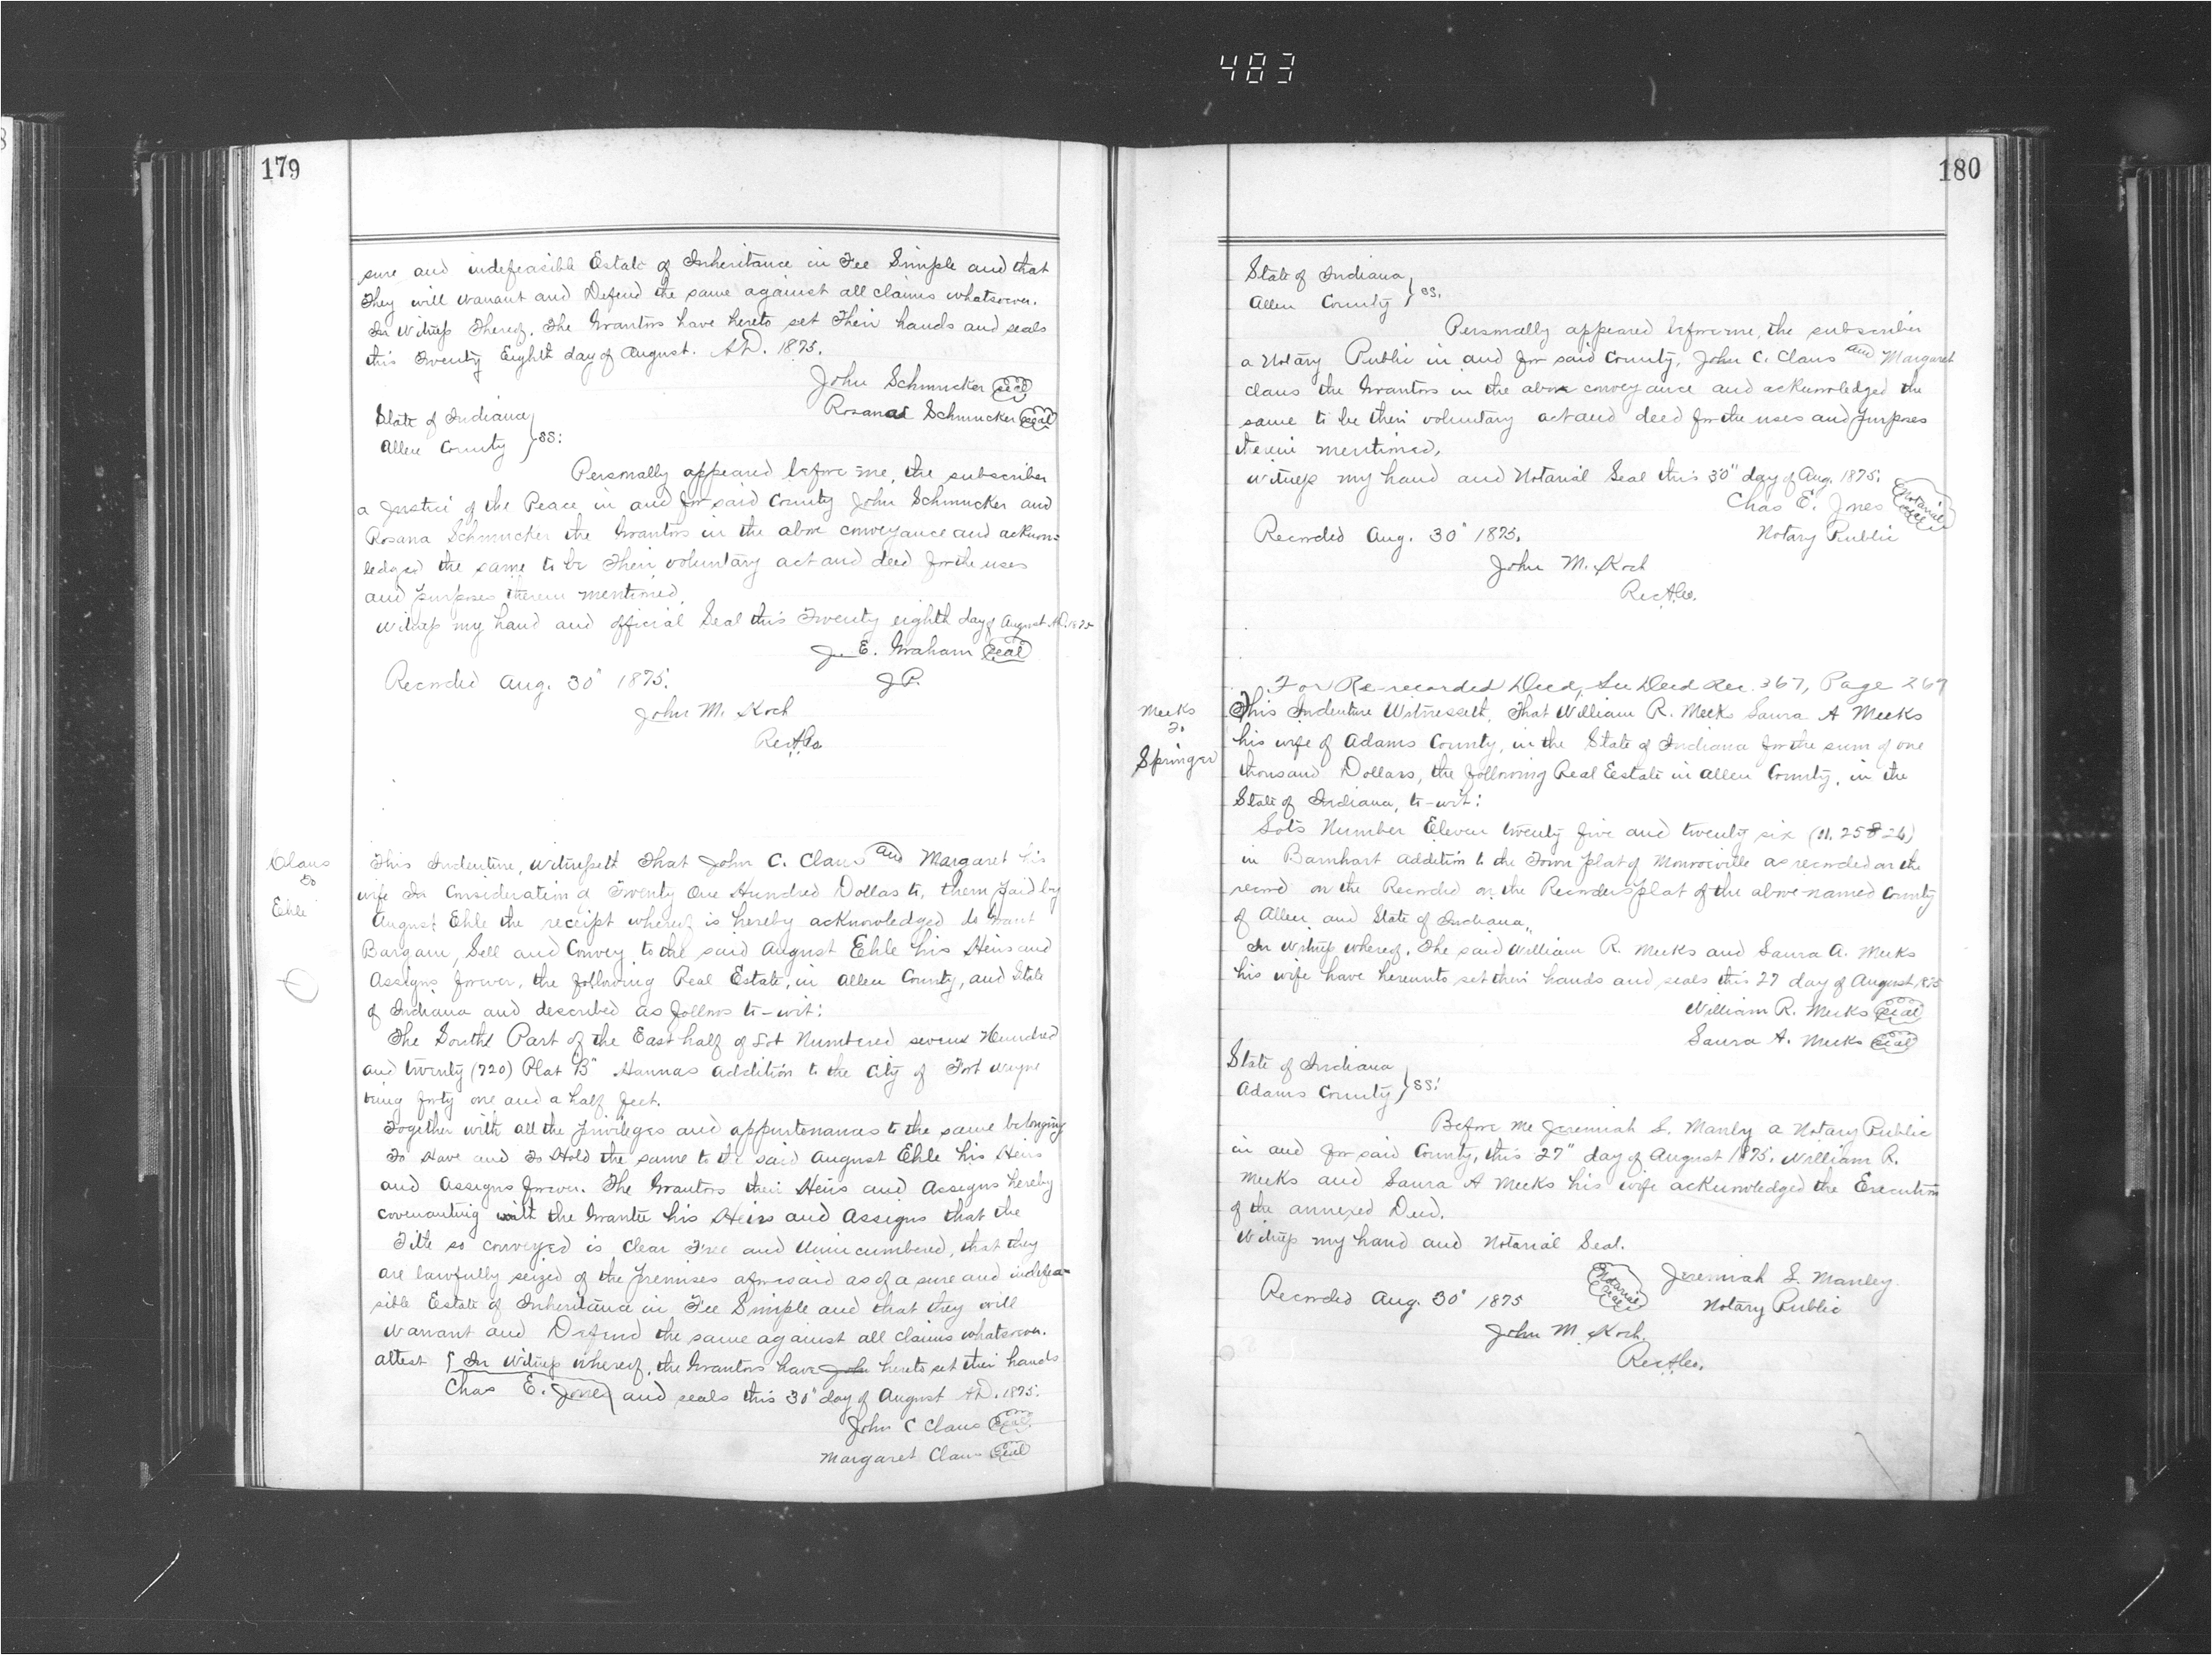 483
179
sure and indefeasible Estate of Inheritance in Fee Simple and that
They will warrant and Defend the same against all claims whatsoever.
In Witness Thereof. The Grantors have hereto set Their hands and seals
this Twenty Eighth day of August. A.D. 1875.
John Schmucker seal
Rosana Schmucker seal
State of Indiana
Allen County } SS:
Personally appeared before me, the subscriber
a Justice of the Peace in and for said County John Schmucker and
Rosana Schmucker the Grantors in the above conveyance and acknow=
ledged the same to be Their voluntary act and deed for the uses
and purposes therein mentioned.
Witness my hand and official Seal this Twenty eighth day of August A.D. 1875
J. E. Graham seal
J.P.
Recorded Aug. 30" 1875.
John M. Koch
R.A.Co.
Claus
to
Ehle
This Indenture, Witnesseth That John C. Claus and Margaret his
wife In Consideration of Twenty One Hundred Dollas to, them paid by
August Ehle the receipt whereof is hereby acknowledged do Grant
Bargain, Sell and Convey to the said August Ehle his Heirs and
Assigns forever, the following Real Estate, in Allen County, and State
of Indiana and described as follows to-wit:
The South Part of the East half of Lot Numbered seven Hundred
and twenty (720) Plat "B" Hannas addition to the City of Fort Wayne
being forty one and a half feet.
Together with all the privileges and appurtenances to the same belonging
To Have and To Hold the same to the said August Ehle his Heirs
and Assigns forever. The Grantors their Heirs and Assigns hereby
covenanting with the Grantee his Heirs and Assigns that the
Title so conveyed is Clear Free and Unincumbered, that they
are lawfully seized of the premises aforesaid as of a sure and indefea=
sible Estate of Inheritance in Fee Simple and that they will
Warrant and Defend the same against all claims whatsoever.
attest { In Witness whereof, the Grantors have John hereto set their hands
Chas E. Jones and seals this 30" day of August A.D. 1875.
John C Claus seal
Margaret Claus seal
180
State of Indiana
Allen County } SS.
Personally appeared before me, the subscriber
a Notary Public in and for said County, John C. Claus and Margaret
Claus the Grantors in the above conveyance and acknowledged the
same to be their voluntary act and deed for the uses and purposes
therein mentioned.
Witness my hand and Notarial Seal this 30" day of Aug. 1875.
Chas E. Jones Notarial seal
Notary Public
Recorded Aug. 30" 1875.
John M. Koch
R.A.Co.
For Re-recorded Deed, See Deed Rec. 367, Page 269
Meeks
To
Springer
This Indenture Witnesseth, That William R. Meeks Laura A Meeks
his wife of Adams County, in the State of Indiana for the sum of one
thousand Dollars, the following Real Eestate in Allen County, in the
State of Indiana, to-wit:
Lots Number Eleven twenty five and twenty six (11. 25 & 26)
in Barnhart addition to the Town plat of Monroeville as recorded on the
record on the Recorded on the Recorders plat of the above named County
of Allen and State of Indiana,,
In Witness whereof. The said William R. Meeks and Laura A. Meeks
his wife have hereunto set their hands and seals this 27 day of August, 1875
William R. Meeks seal
Laura A. Meeks seal
State of Indiana
Adams County } SS:
Before me Jeremiah S. Manley a Notary Public
in and for said County, this 27" day of August 1875. William R.
Meeks and Laura A Meeks his wife acknowledged the Execution
of the annexed Deed.
Witness my hand and Notarial Seal.
Notarial seal Jeremiah S. Manley
Notary Public
Recorded Aug. 30" 1875
John M. Koch.
R.A.Co.